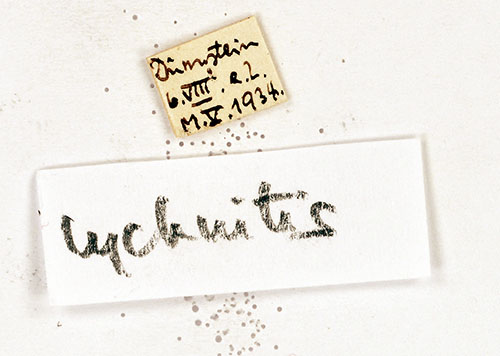 Dürnstein
6.VIII. e.l.
M.V.1934.
lychnitis